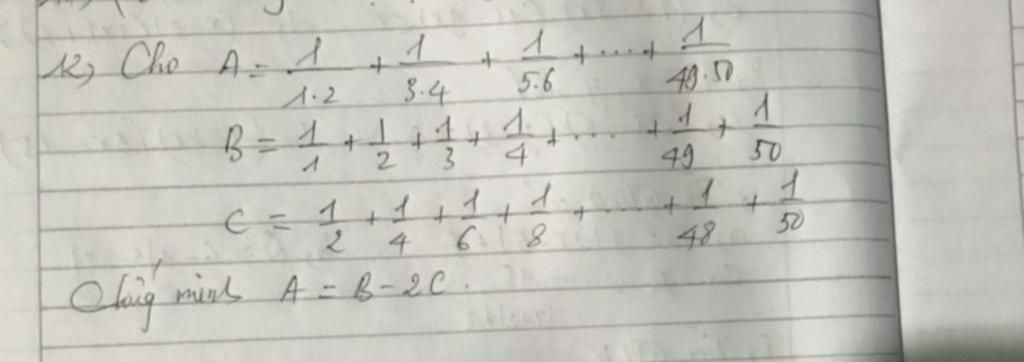 12) Cho A = 1/1.2 + 1/3.4 + 1/5.6 + .... + 1/49.50
B = 1/1 + 1/2 + 1/3 + 1/4 + .... + 1/49 + 1/50
C = 1/2 + 1/4 + 1/6 + 1/8 + .... + 1/48 + 1/50
Chứng minh A = B - 2C.